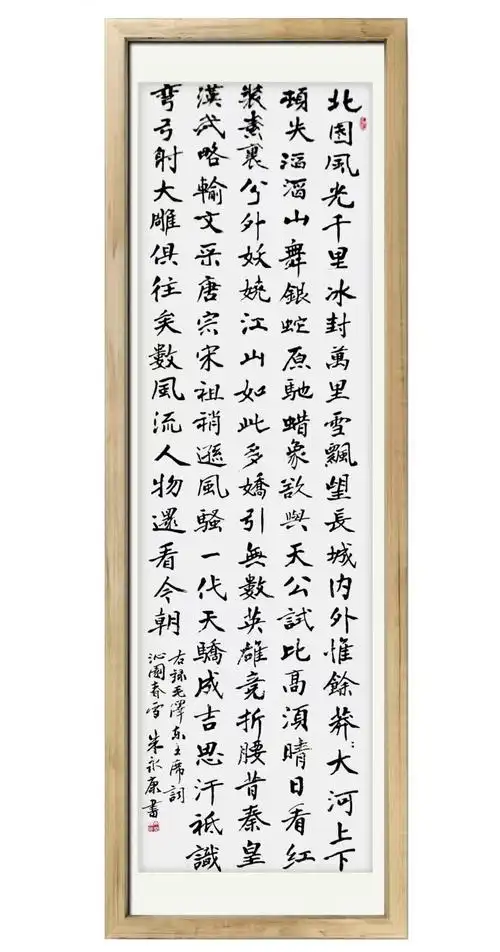 北国風光千里冰封萬里雪飄望長城内外惟餘莽〻大河上下
頓失滔滔山舞銀蛇原馳蜡象欲與天公試比高須晴日看紅
裝素裹分外妖嬈江山如此多嬌引無數英雄竞折腰昔秦皇
漢武略輸文采唐宗宋祖稍遜風騷一代天驕成吉思汗祗識
彎弓射大雕俱往矣數風流人物還看今朝
右録毛澤东主席詞
沁園春雪 朱永康書